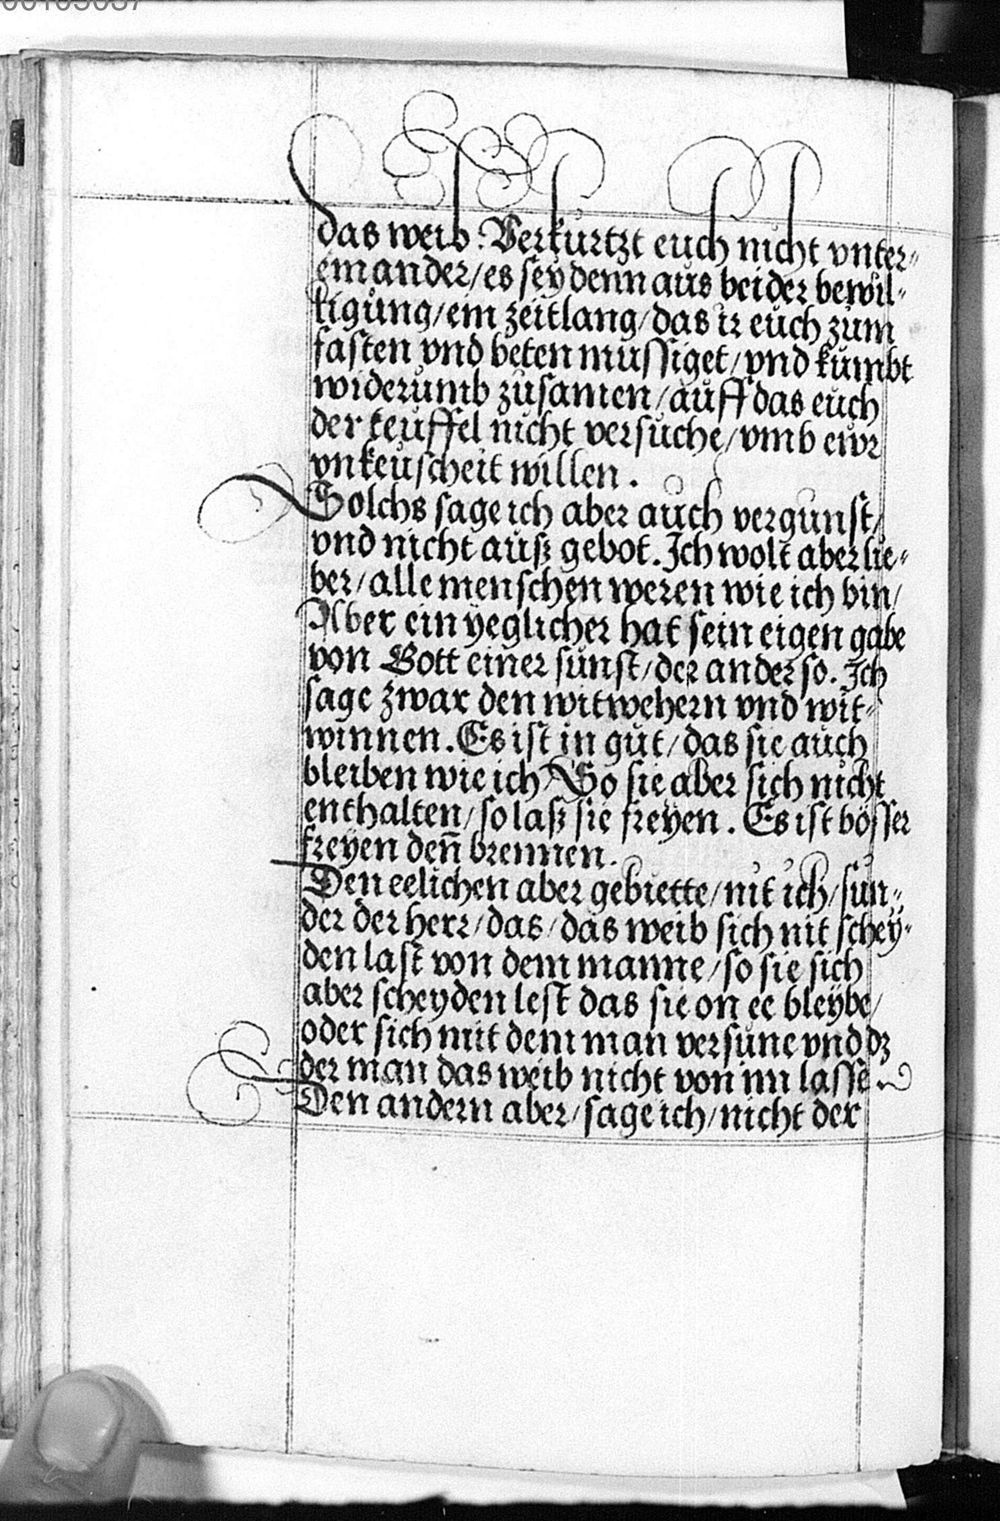 00105087
das weib. Verkurtzt euch nicht vnter⸗
einander/ es sey denn aus beider bewil⸗
ligung/ ein zeitlang/ das ir euch zum
fasten vnd beten mussiget/ vnd kumbt
widerumb zusamen/ auff das euch
der teuffel nicht versuche/ vmb ewr
vnkeuscheit willen.
Solchs sage ich aber auch vergunst/
vnd nicht auß gebot. Ich wolt aber lie⸗
ber/ alle menschen weren wie ich bin/
Aber ein yeglicher hat sein eigen gabe
von Gott einer sunst/ der ander so. Ich
sage zwar den witwehern vnd wit⸗
winnen. Es ist in gut/ das sie auch
bleiben wie ich/ So sie aber sich nicht
enthalten/ so laß sie freyen. Es ist bösser
freyen den̄ brennen.
Den eelichen aber gebiette/ nit ich/ sun⸗
der der herr/ das/ das weib sich nit schey⸗
den last von dem manne/ so sie sich
aber scheyden lest das sie on ee bleybe/
oder sich mit dem man versune vnd dz
der man das weib nicht von im lasse
Den andern aber/ sage ich/ nicht der